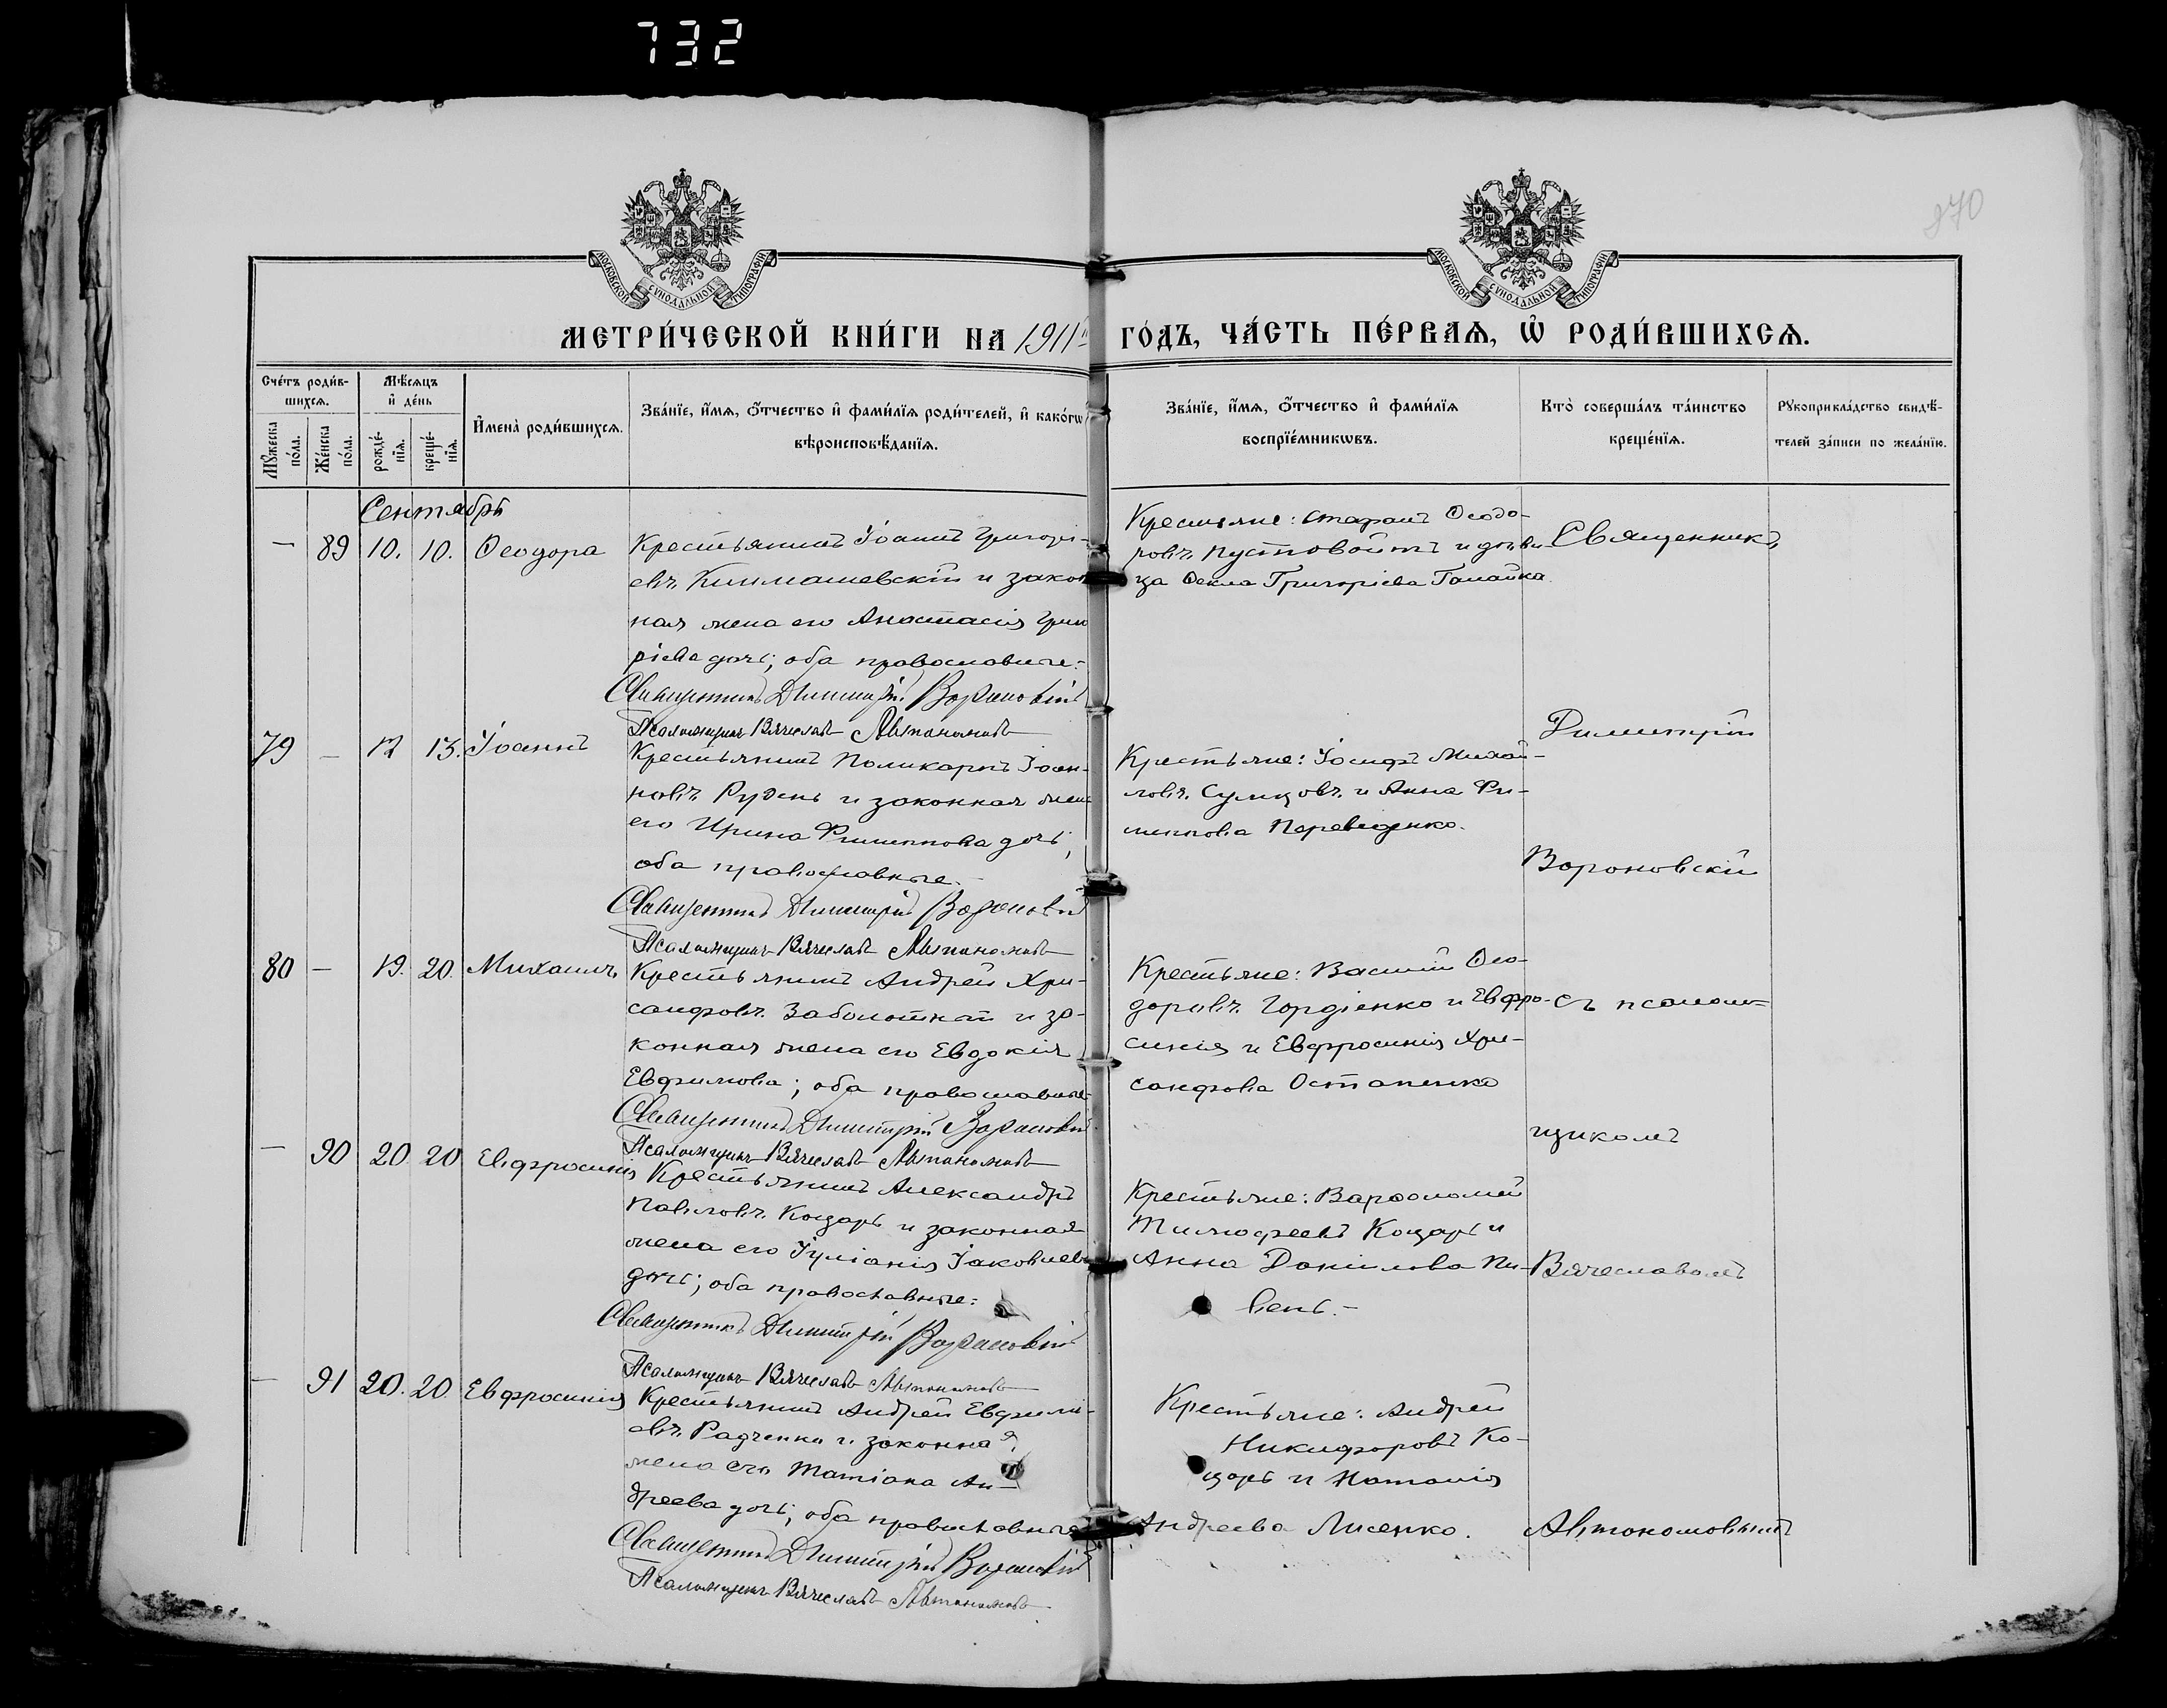 732
870
МОСКОВСКОЙ СѴНОДАЛЬНОЙ ТИПОГРАФІИ
МОСКОВСКОЙ СѴНОДАЛЬНОЙ ТИПОГРАФІИ
МЕТРИ́ЧЕСКОЙ КНИ́ГИ НА 1911й ГО́ДЪ, ЧА́СТЬ ПЕ́РВАѦ, Ѡ҆ РОДИ́ВШИХСѦ.
Сче́тъ роди́в-
шихсѧ.
Мѣ́сѧцъ
и҆ де́нь
Мꙋ́жеска
по́ла.
Же́нска
по́ла.
рожде́-
нїѧ.
креще́-
нїѧ.
И҆мена̀ роди́вшихсѧ.
Зва́нїе, и҆́мѧ, ѻ҆́тчество и҆ фами́лїѧ роди́телей, и҆ како́гѡ
вѣроисповѣ́данїѧ.
Зва́нїе, и҆́мѧ, ѻ҆́тчество и҆ фами́лїѧ
воспрїе́мникѡвъ.
Кто̀ соверша́лъ та́инство
креще́нїѧ.
Рꙋкоприкла́дство свидѣ́-
телей за́писи по жела́нїю.
Сентябрь
— 89 10. 10. Ѳеодора
Крестьянинъ Іоаннъ Григорі-
евъ Климашевскій и закон
ная жена его Анастасія Григо
ріева дочь; оба православные:
Священникъ Димитрій Вороновскій
Псаломщикъ Вячеславъ Автономовъ
Крестьяне: Стефанъ Ѳеодо-
ровъ Пустовойтъ и дѣви-
ца Ѳекла Григоріева
Священникъ
79 — 12 13. Іоаннъ
Крестьянинъ Поликарпъ Іоан-
новъ Рудень и законная жена
его Ирина Филиппова дочь;
оба православные.
Священникъ Димитрій Вороновскій
Псаломщикъ Вячеславъ Автономовъ
Крестьяне: Іосифъ Михай-
ловъ Сумцовъ и Анна Фи-
липпова Переведенко.
Димитрій
Вороновскій
80 — 19. 20. Михаилъ
Крестьянинъ Андрей Хри-
санфовъ Заболотній и за-
конная жена его Евдокія
Евфимова; оба православные
Священникъ Димитрій Вороновскій
Псаломщикъ Вячеславъ Автономовъ
Крестьяне: Василій Ѳео-
доровъ Гордіенко и Евфро-
синія и Евфросинія Хри-
санфова Остапенко
съ псалом-
щикомъ
— 90 20. 20 Евфросинія
Крестьянинъ Александръ
Павловъ Коцарь и законная
жена его Іуліанія Іаковлева
дочь; оба православные:
Священникъ Димитрій Вороновскій
Псаломщикъ Вячеславъ Автономовъ
Крестьяне: Варѳоломей
Тимоѳеевъ Коцарь и
Анна Даніилова Пи-
вень.—
Вячеславомъ
— 91 20. 20. Евфросинія
Крестьянинъ Андрей Евфимі-
евъ Радченко и законная
жена его Татіана Ан-
дреева дочь; оба православные
Священникъ Димитрій Вороновскій
Псаломщикъ Вячеславъ Автономовъ
Крестьяне: Андрей
Никифоровъ Ко-
царь и Наталія
Андреева Лисенко.
Автономовымъ